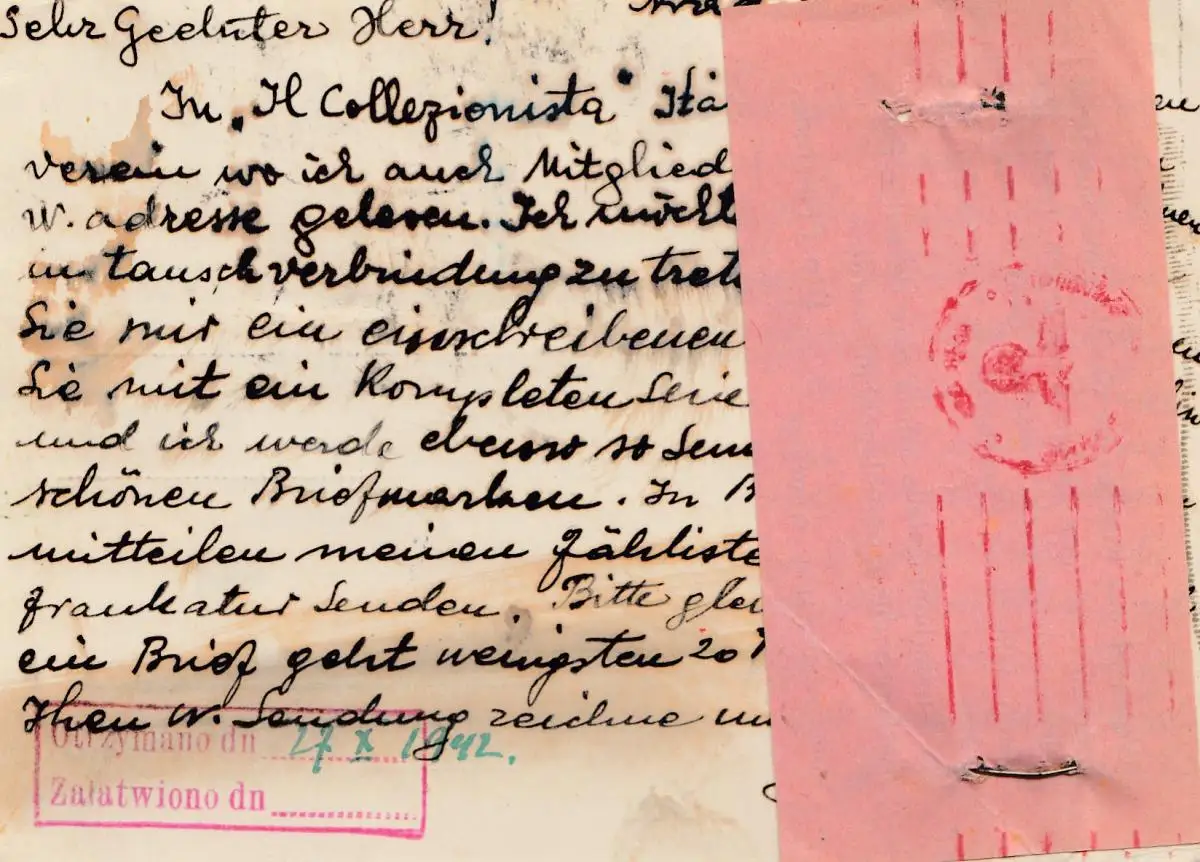 Sehr Geehrter Herr!
In „Il Collezionista" Ita
verein wo ich auch Mitglied
w. adresse gelesen. Ich möcht
in tauschverbindung zu tret
Sie mir ein einschreibenen
Sie mit ein Kompleten Serie
und ich werde ebenso so Sen
schönen Briefmarken. In B
mitteilen meinen fähliste
frankatur Senden. Bitte glei
ein Brief geht wenigsten 20
Ihen w. Sendung zeichne
Otrzymano dn 27 X 1942.
Załatwiono dn